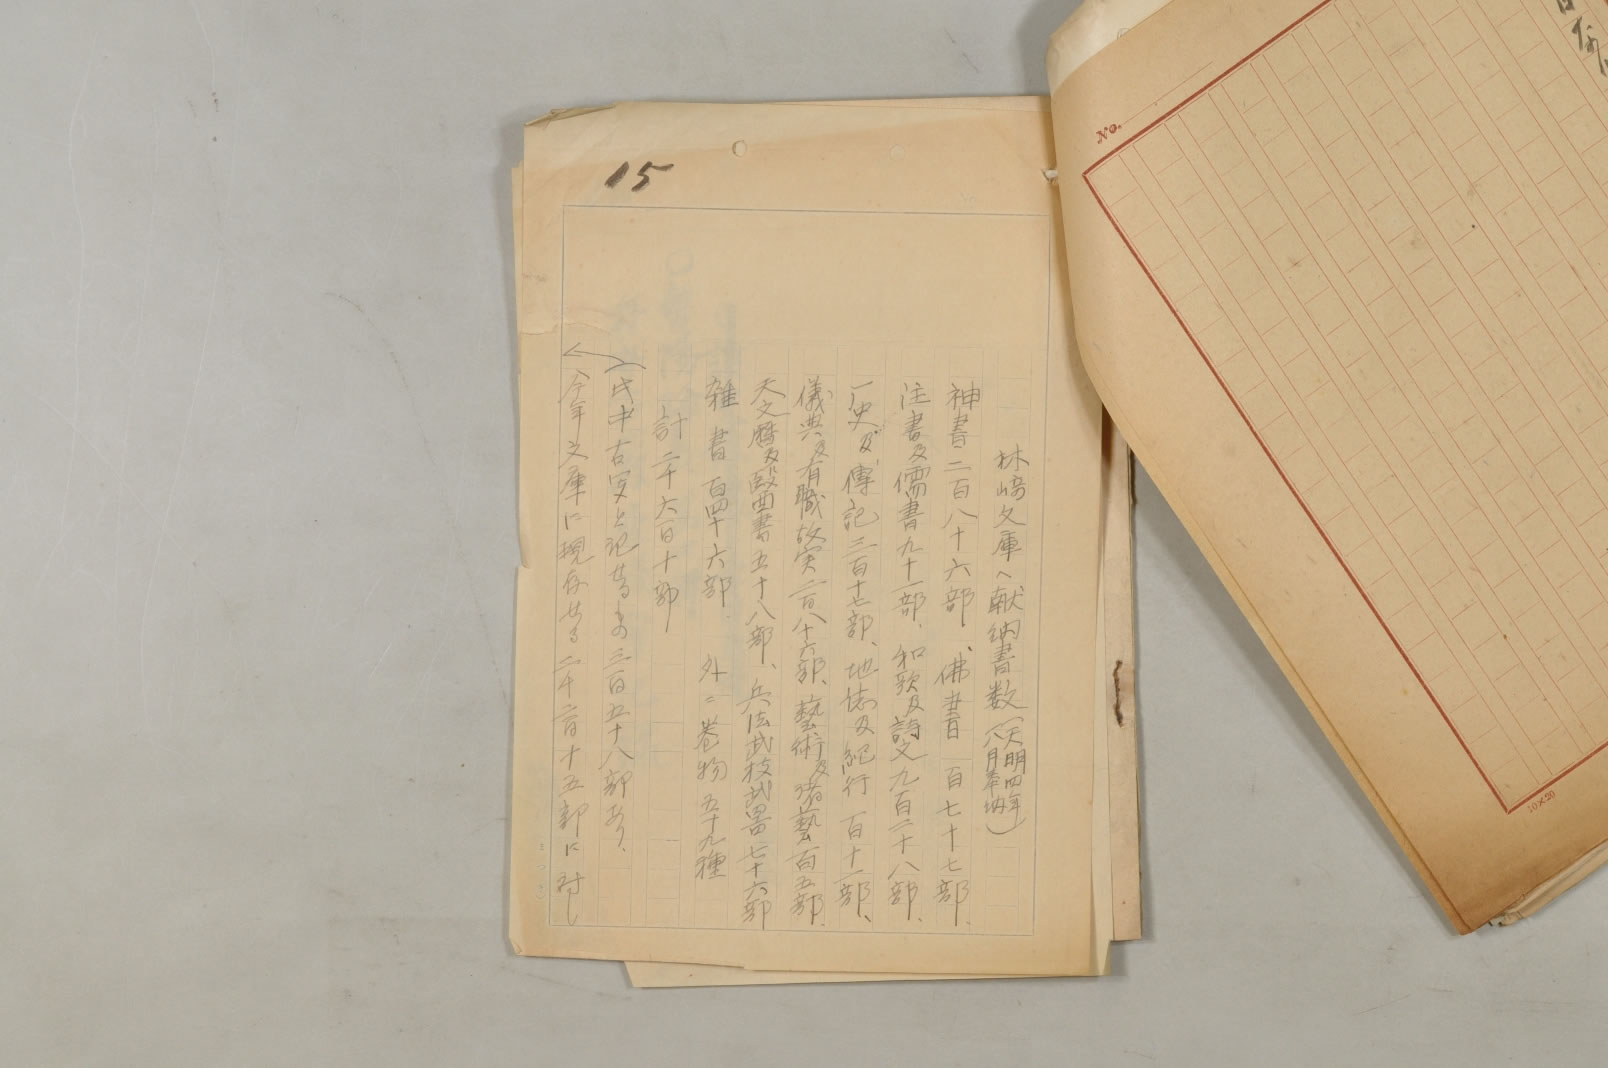 15
林崎文庫へ献納書数(天明四年八月奉納)
神書二百八十六部、佛書 百七十七部、
注書及儒書九十一部、和歌及詩文九百二十八部、
厂史及傳記三百十七部、地誌及紀行 百十一部、
儀典及有職故実二百八十六部、藝術及諸藝百五部、
天文暦及醫書五十八部、兵法武技武器七十六部
雑書 百四十六部 外ニ巻物五十九種
計二千六百十部
(氏中古写と記せるもの三百五十八部あり、
今年文庫に現存せる二千二百十五部に対し
No.
10×20